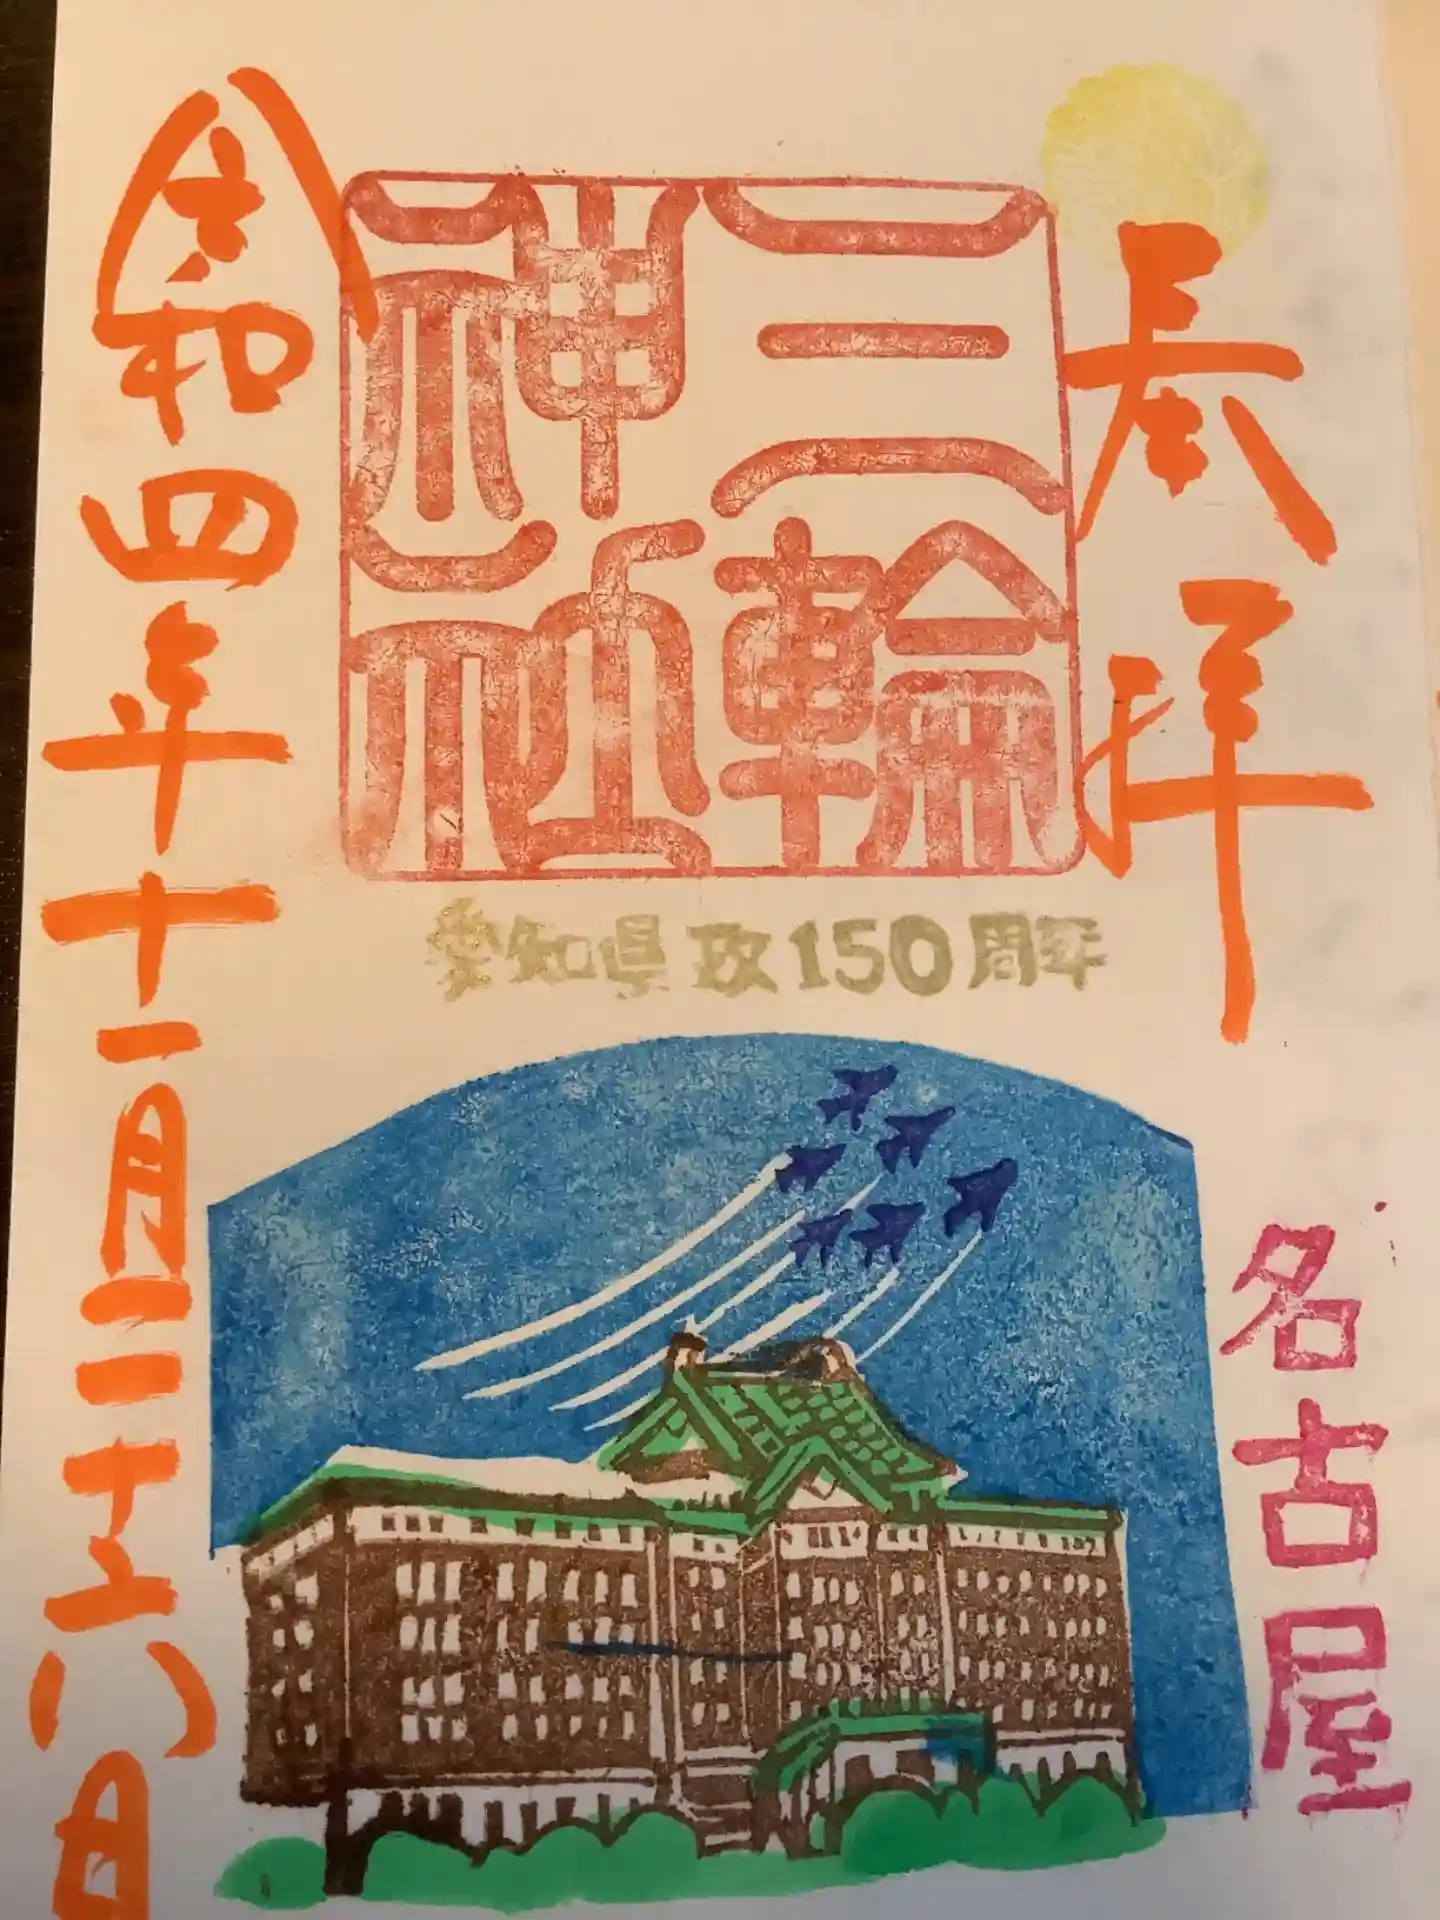 奉拝
三輪
神社
愛知県政150周年
名古屋
令和四年十一月二十六日